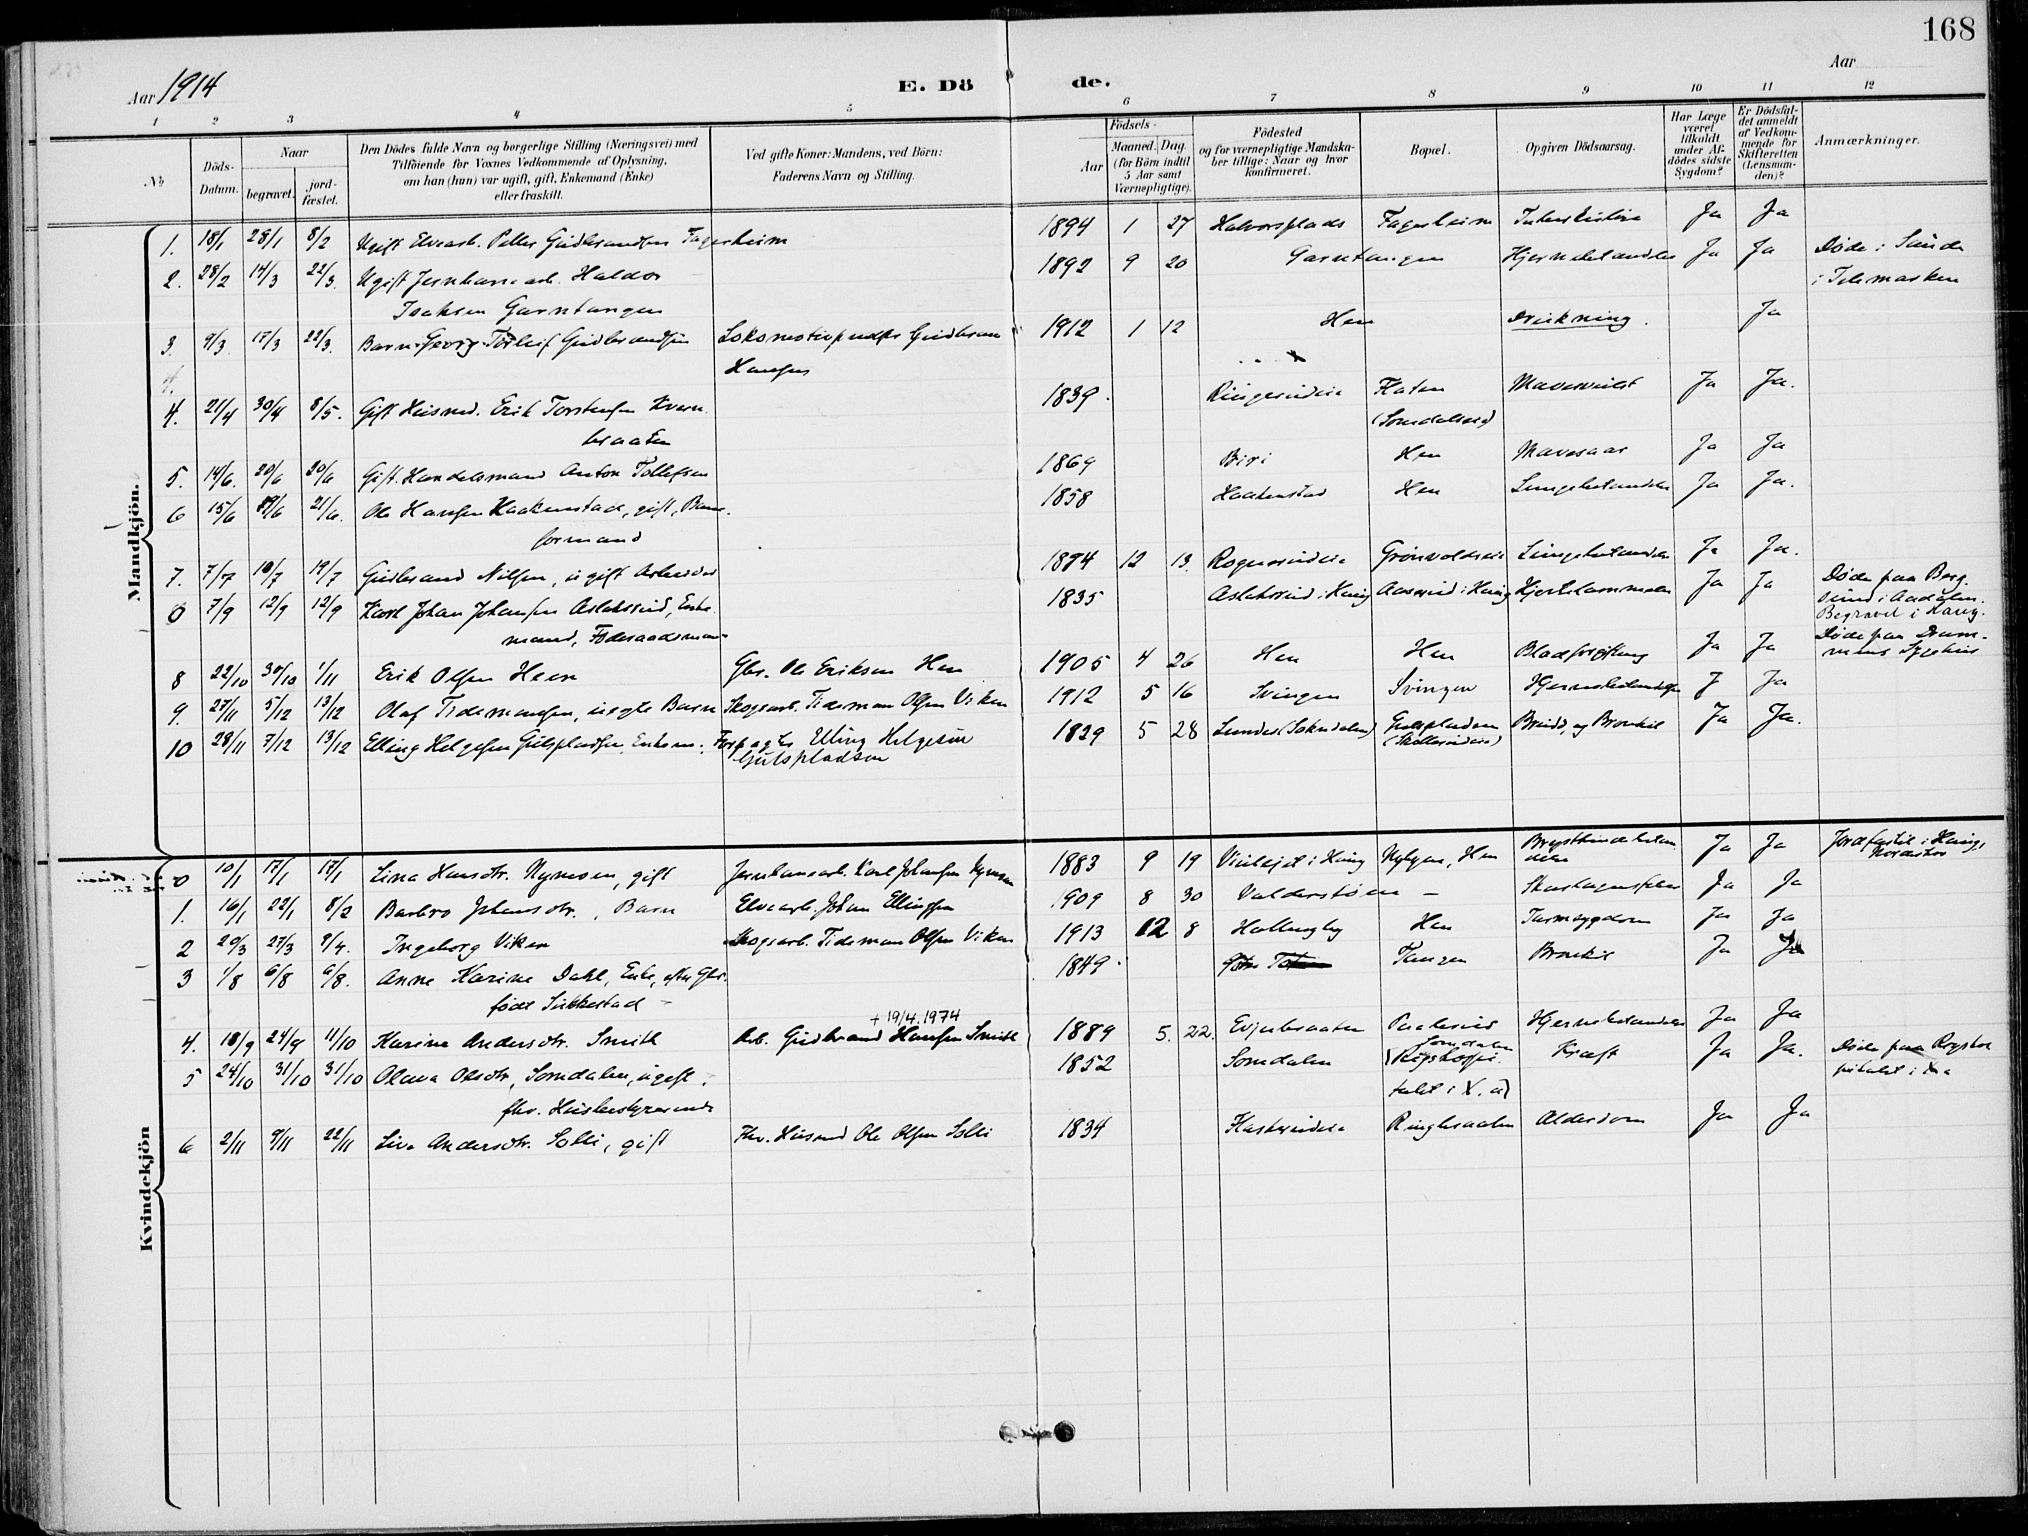 168
Aar 1914
E. Dö de.
Aar
1 2 3 4 5 6 7 8 9 10 11 12
No
Döds-Datum.
Naar
begravet.
jord-fæstet.
Den Dödes fulde Navn og borgerlige Stilling (Næringsvei) med
Tilföiende for Voxnes Vedkommende af Oplysning,
om han (hun) var ugift, gift, Enkemand (Enke)
eller fraskilt.
Ved gifte Koner: Mandens, ved Börn:
Faderens Navn og Stilling.
Födsels-
Aar
Maaned. Dag.
(for Börn indtil
5 Aar samt
Værnepligtige).
Födested
og for værnepligtige Mandska-
ber tillige: Naar og hvor
konfirmeret.
Bopæl.
Opgiven Dödsaarsag.
Har Læge
været
tilkaldt
under Af-
dödes sidste
Sygdom?
Er Dödsfal-
det anmeldt
af Vedkom-
mende for
Skifteretten
(Lensman-
den)?
Anmærkninger.
Mandkjön.
1. 18/1 28/1 8/2 Ugift Elvearb. Peller Gudbrandsen Fagerheim 1894 1 27 Halvorsplads Fagerheim Tuberkulose Ja Ja
2. 28/2 14/3 22/3. Ugift Jernbanearb. Haldor 1892 9 20 Garntangen Hjernebetændelse Ja Ja Døde i Saude
Isaksen Garntangen i Telemarken
3. 9/3 17/3 22/3. Barn Georg Torleif Gudbrandsen Lokomotivpudser Gudbran 1912 1 12 Hen Drukning. Ja
Hansen
4. 21/4 30/4 8/5. Gift Husmd. Erik Torstensen Kvern 1839. Ringerudeie Flaten Mavesvulst Ja Ja.
braaten (Somdalseie)
5. 14/6. 20/6 20/6 Gift. Handelsmand Anton Tollefsen 1869 Biri Hen Mavesaar Ja Ja
6 15/6 19/6 21/6. Ole Hansen Haakenstad, gift, Bane- 1858 Haakenstad Hen Lungebetændelse Ja Ja.
formand
7. 7/7 10/7 19/7 Gudbrand Nilsen, ugift Arbeider 1874 12 13. Rognerudeie Grønvoldseie Lungebetændelse Ja Ja.
0 7/9 12/9 12/9 Karl Johan Johansen Aslaksrud, Enke- 1835 Aslaksrud i Haug Aaserud i Haug Hjertelammelse Ja Ja Døde paa Berg-
mand, Føderaadsman sund i Aadalen.
Begravet i Haug.
8 22/10 30/10 1/11 Erik Olsen Heen Gbr. Ole Eriksen Hen 1905 4 26 Hen Hen Blodforgiftning Ja Ja Døde paa Dram-
mens Sygehus
9. 27/11 5/12 13/12 Olaf Tidemansen, uegte Barn Skogsarb. Tideman Olsen Viken 1912 5 16 Svingen Svingen Hjernebetændelse J Ja
10 28/11 7/12 13/12 Elling Helgesen Gulspladsen, Enkem. Forpagter Elling Helgesen 1829 5 28 Lunder (Soknedalen) Gulspladsen Bronkit Ja Ja.
Gulspladsen
Kvindekjön
0 10/1 17/1 17/1 Lina Hansdtr. Nymoen, gift Jernbanearb. Karl Johansen Nymoen 1883 9 19 Haug Hen Brystbindebetæn- Ja Ja Jordfæstet i Haug,
delse
1. 16/1 22/1 8/2 Barbro Johansdtr., Barn Elvearb. Johan Ellingsen 1909 8 30 Valderstøen - Skarlagensfeber Ja Ja
2 20/3 27/3 9/4. Ingeborg Viken Skogsarb. Tideman Olsen Viken 1913 12 8 Hallingby Hen Tarmsygdom Ja Ja
3 1/8 6/8 6/8. Anne Karine Dahl, Enke, efter Gbr. 1849. Toten Tangen Bronkit Ja Ja
født Sukkestad -
+ 19/4.1974
4. 18/9 24/9 11/10 Karine Andersdtr. Smith Arb. Gudbrand Hansen Smith 1889 5. 22. Evjebraaten Hjernebetændelse Ja Ja
5 24/10 31/10 31/10 Olava Olsdtr, Somdalen, ugift, 1852 Somdalen Somdalen Kræft Ja Ja. Døde paa Rigshos
(Rigshospi-
pitalet i Xa
fhv. Husbestyrerinde talet i X.a)
6 2/11 9/11 22/11 Live Andersdtr. Solli, gift Fhv. Husmd Ole Olsen Solli 1834 Flaskerudeie Ringbraaten Alderdom Ja Ja